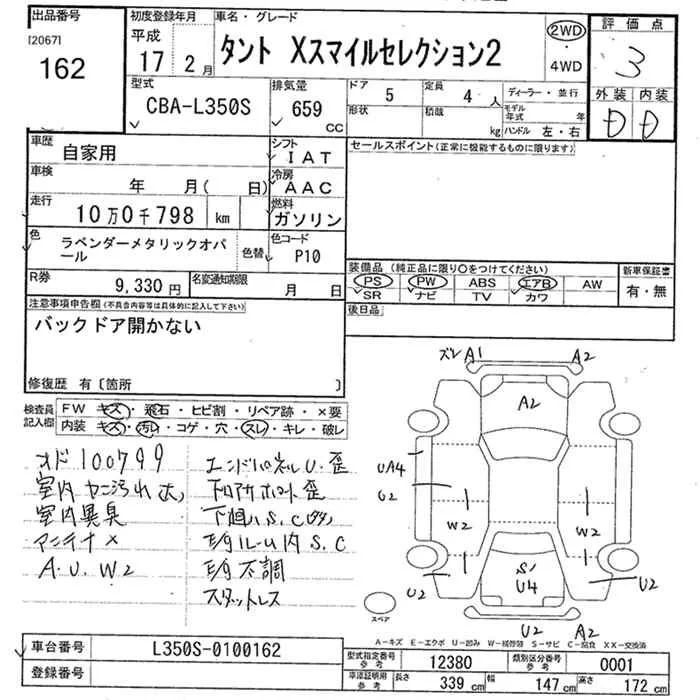 出品番号
[2067]
162
初度登録年月
平成
17 2月
車名・グレード
タント Xスマイルセレクション2
2WD
・
4WD
評価点
3
外装 内装
D D
型式
CBA-L350S
排気量
659
CC
ドア 5
形状
定員 4 人
積載 kg
ディーラー・並行
モデル年式 年
ハンドル 左・右
車歴 自家用
シフト IAT
車検 年 月( 日)
冷房 AAC
走行 10万0千798 km
燃料 ガソリン
色 ラベンダーメタリックオパール
色替
色コード P10
R券 9,330円
名変通知期限 月 日
セールスポイント(正常に機能するものに限ります)
装備品(純正品に限り○をつけてください)
PS PW ABS エアB AW
SR ナビ TV カワ
新車保証書
有・無
後日品
注意事項申告欄(不具合内容等は具体的に記入して下さい)
バックドア開かない
修復歴 有〔箇所 〕
検査員記入欄
FW キズ・飛石・ヒビ割・リペア跡・×要
内装 キズ・汚れ・コゲ・穴・スレ・キレ・破レ
オド 100799
室内ヤニ汚れ大
室内異臭
アンテナ×
A.U.W2
エンドパネルU.歪
下回りS.C
S.C
不調
スタットレス
ズレ A1 A2
A2
UA4
U2
W2 W2
S1
U4
U2 U2
U2 A2
スペア
A-キズ E-エクボ U-凹み W-補修跡 S-サビ C-腐食 XX-交換済
車台番号 L350S-0100162
登録番号
型式指定番号 参考 12380
類別区分番号 参考 0001
車添証明用 参考 長さ 339 cm 幅 147 cm 高さ 172 cm